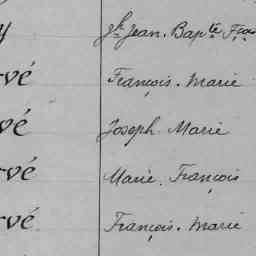 Jh Jean. Bapte Fçois
rvé François. Marie
vé Joseph Marie
rvé Marie. François
rvé François. Marie